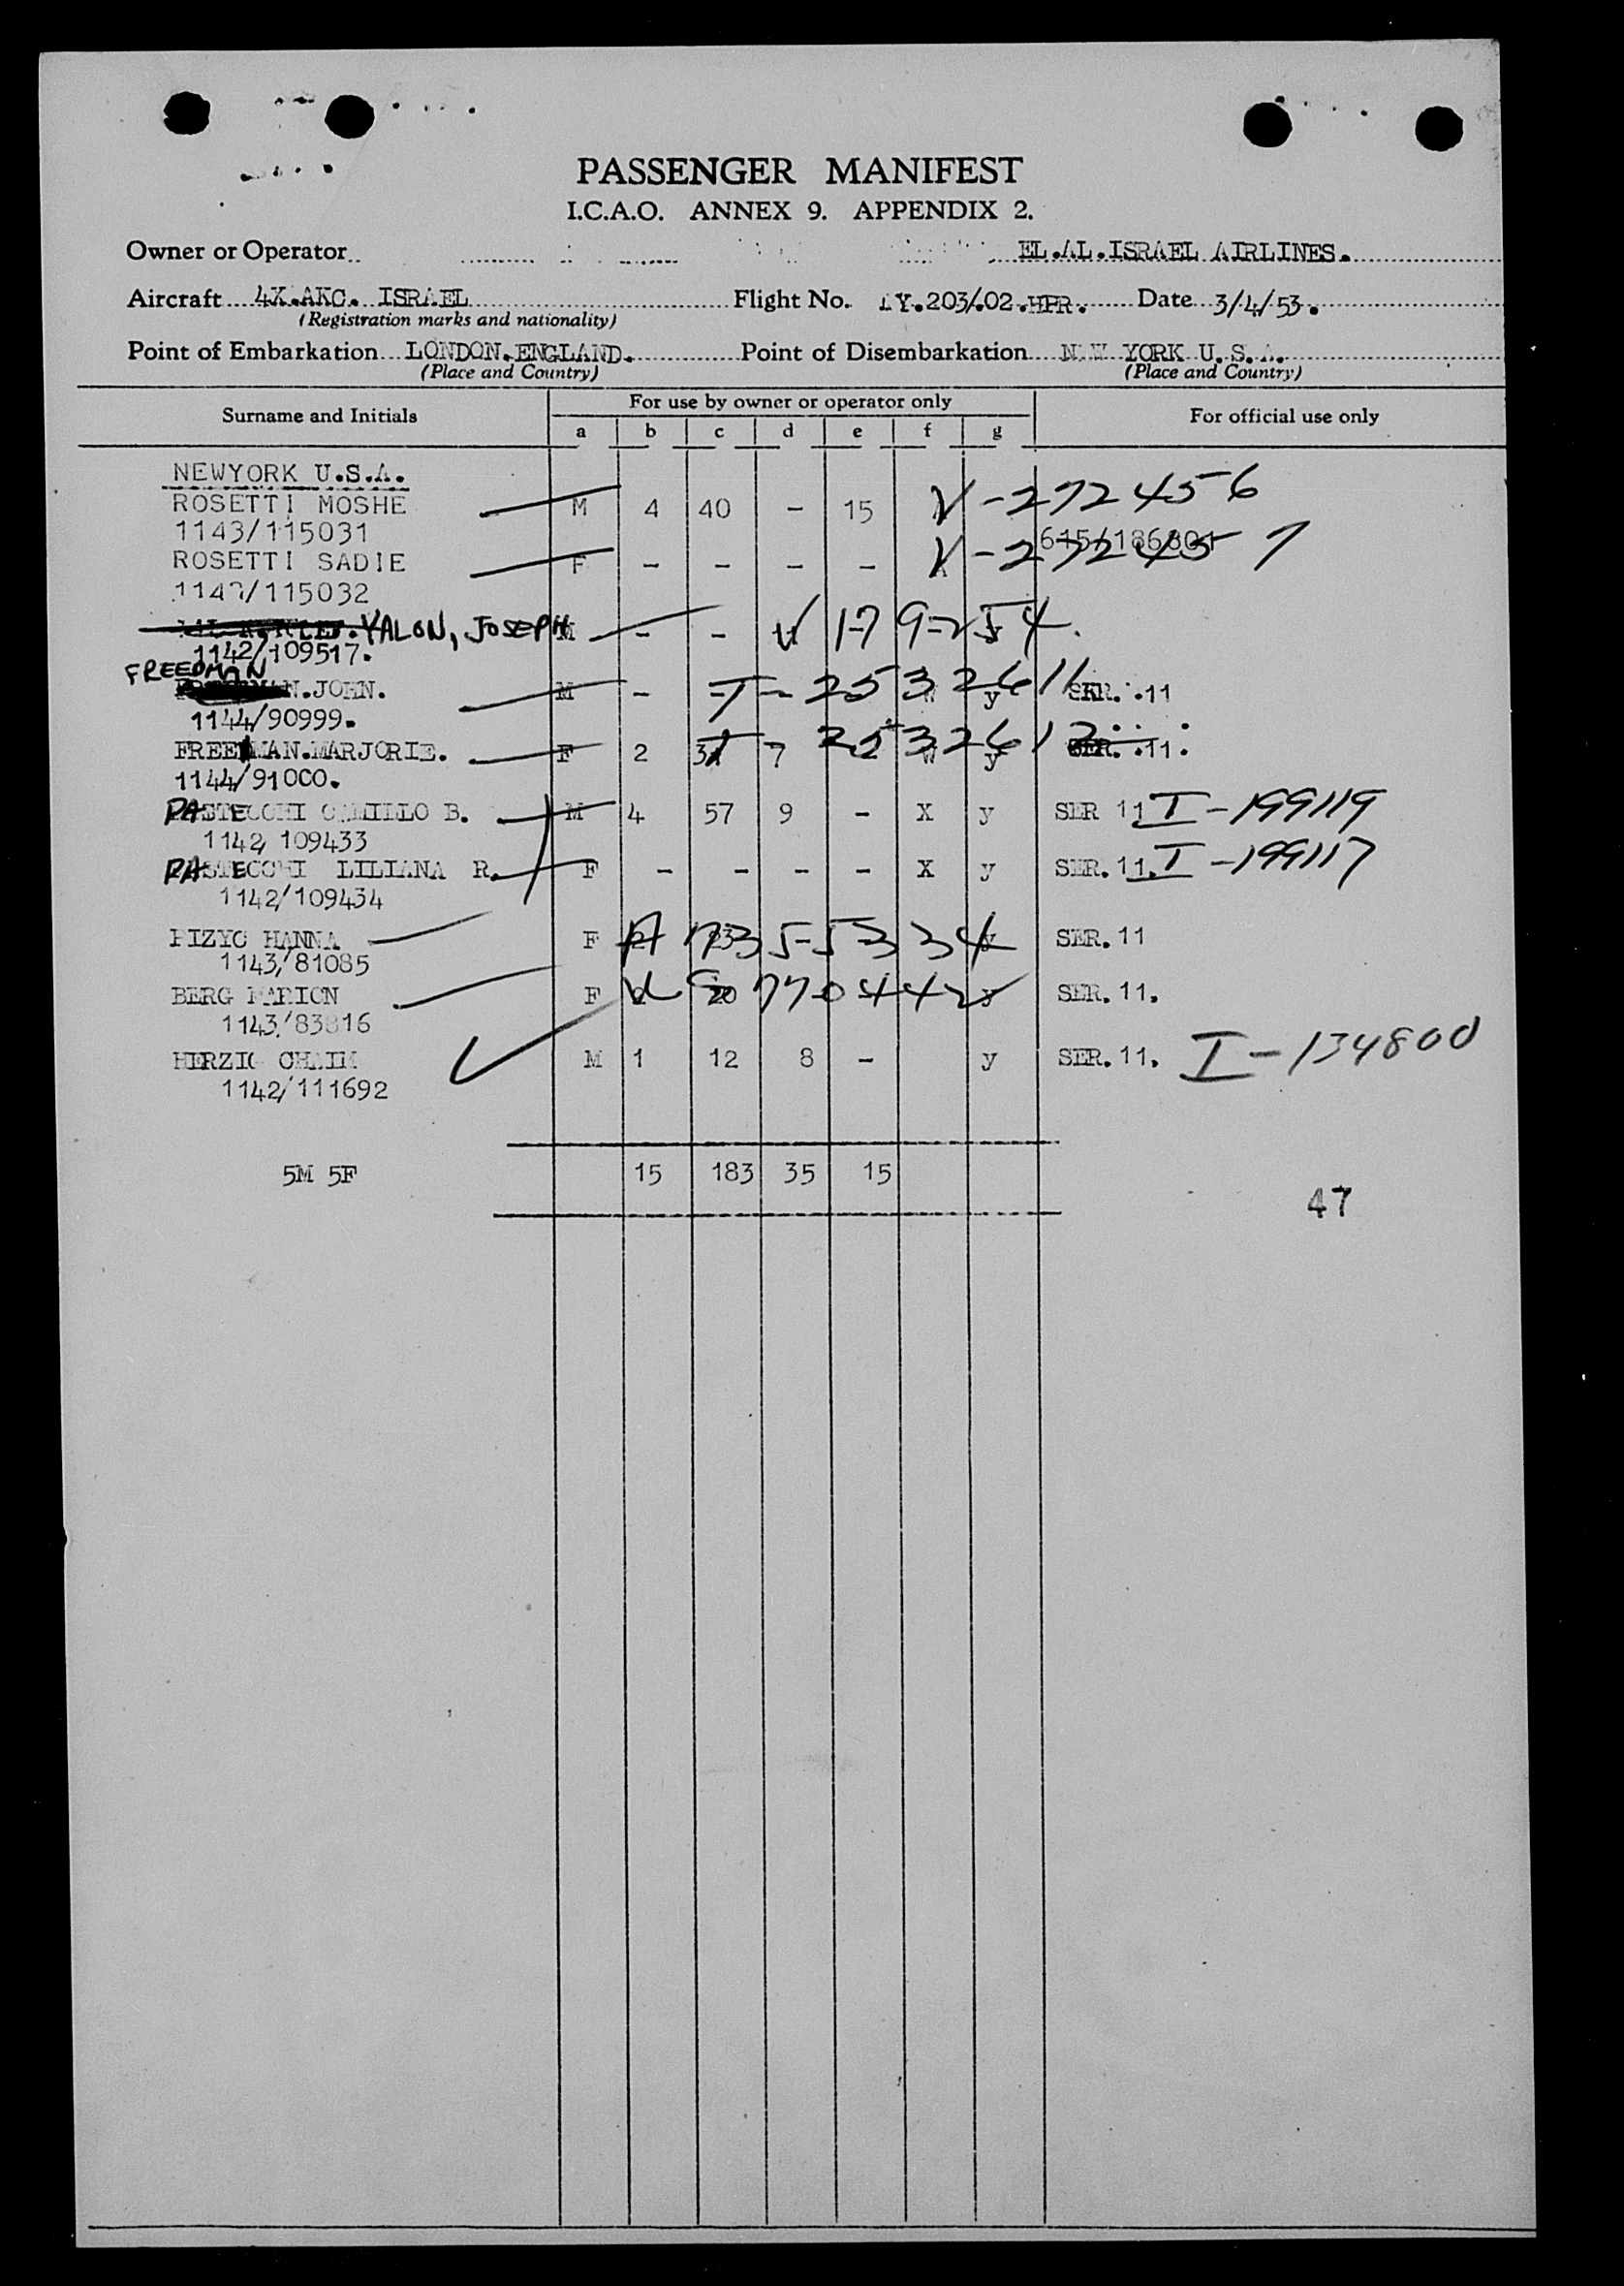 PASSENGER MANIFEST
I.C.A.O. ANNEX 9. APPENDIX 2.
Owner or Operator EL.AL.ISRAEL AIRLINES.
Aircraft 4X.AKC. ISRAEL Flight No. LY.203/.02.HPR. Date 3/4/53.
(Registration marks and nationality)
Point of Embarkation LONDON.ENGLAND. Point of Disembarkation NEW YORK U.S.A.
(Place and Country) (Place and Country)
Surname and Initials For use by owner or operator only For official use only
a b c d e f g
NEWYORK U.S.A.
ROSETTI MOSHE M 4 40 - 15 V-272456
1143/115031
ROSETTI SADIE F - - - - V-272457
1143/115032
YALON, JOSEPH M - - V 179254.
1142/109517.
FREEDMAN
JOHN. M - T-2532611 y SER. .11
1144/90999.
FREEDMAN.MARJORIE. F 2 7 T 2532612 W y SER. .11.
1144/91000.
PASTECCHI CAMILLO B. M 4 57 9 - X y SER 11 I-199119
1142/109433
PASTECCHI LILIANA R. F - - - - X y SER.11. I-199117
1142/109434
HANNA F SER.11
1143/81085
BERG MARION F 20 SER.11.
1143/83816
HERZIG CHAIM M 1 12 8 - y SER.11. I-134800
1142/111692
5M 5F 15 183 35 15
47